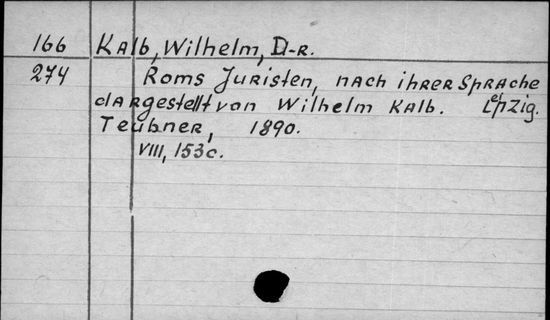 166 Kalb, Wilhelm, D-r.
274 Roms Juristen, nach ihrer Sprache
dargestellt von Wilhelm Kalb. Leipzig.
Teubner, 1890.
VIII, 153 c.